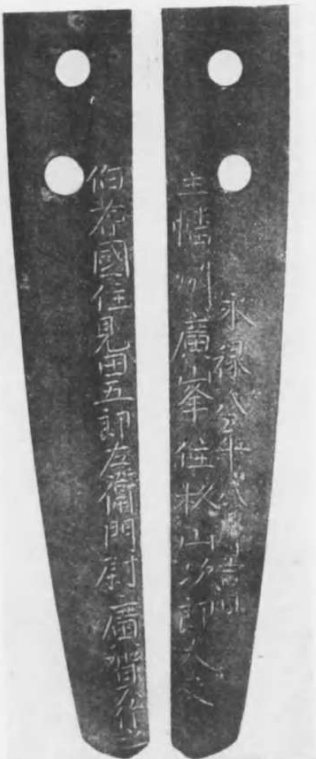 永禄八年八月吉日
主幡州廣峯住杦山次郎大夫
伯耆國住見田五郎左衛門尉廣賀作之